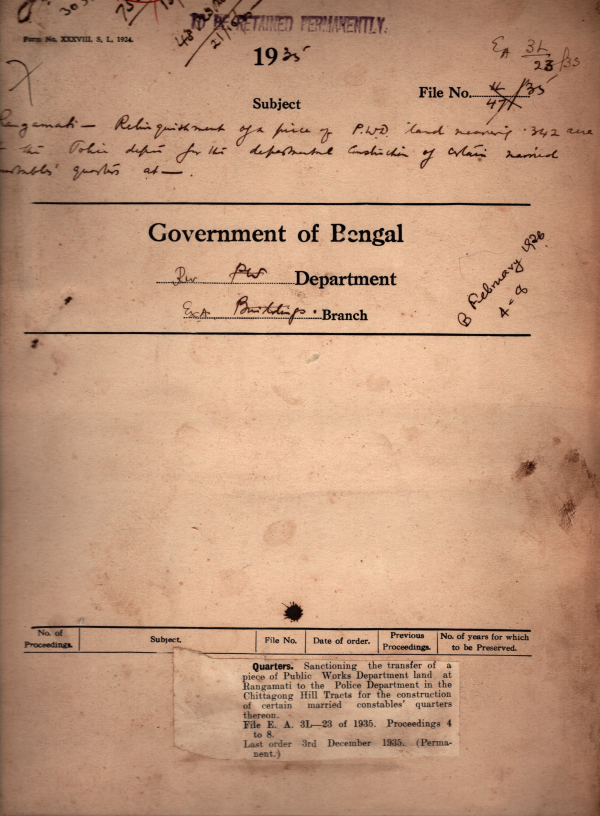 TO BE RETAINED PERMANENTLY.
Form No. XXXVIII, S, L, 1924.
1935
EA 3L/23/35
File No. 4/47/35
Subject
Rangamati — Relinquishment of a piece of P.W.D. land measuring .342 acre
the Police deptt for the departmental Construction of certain married
constables' quarters at—.
Government of Bengal
Rev PW Department
EA Buildings. Branch
B February 1936
4-8
No. of Proceedings.
Subject.
File No.
Date of order.
Previous Proceedings.
No. of years for which to be Preserved.
Quarters. Sanctioning the transfer of a
piece of Public Works Department land at
Rangamati to the Police Department in the
Chittagong Hill Tracts for the construction
of certain married constables' quarters
thereon.
File E. A. 3L—23 of 1935. Proceedings 4
to 8.
Last order 3rd December 1935. (Perma-
nent.)